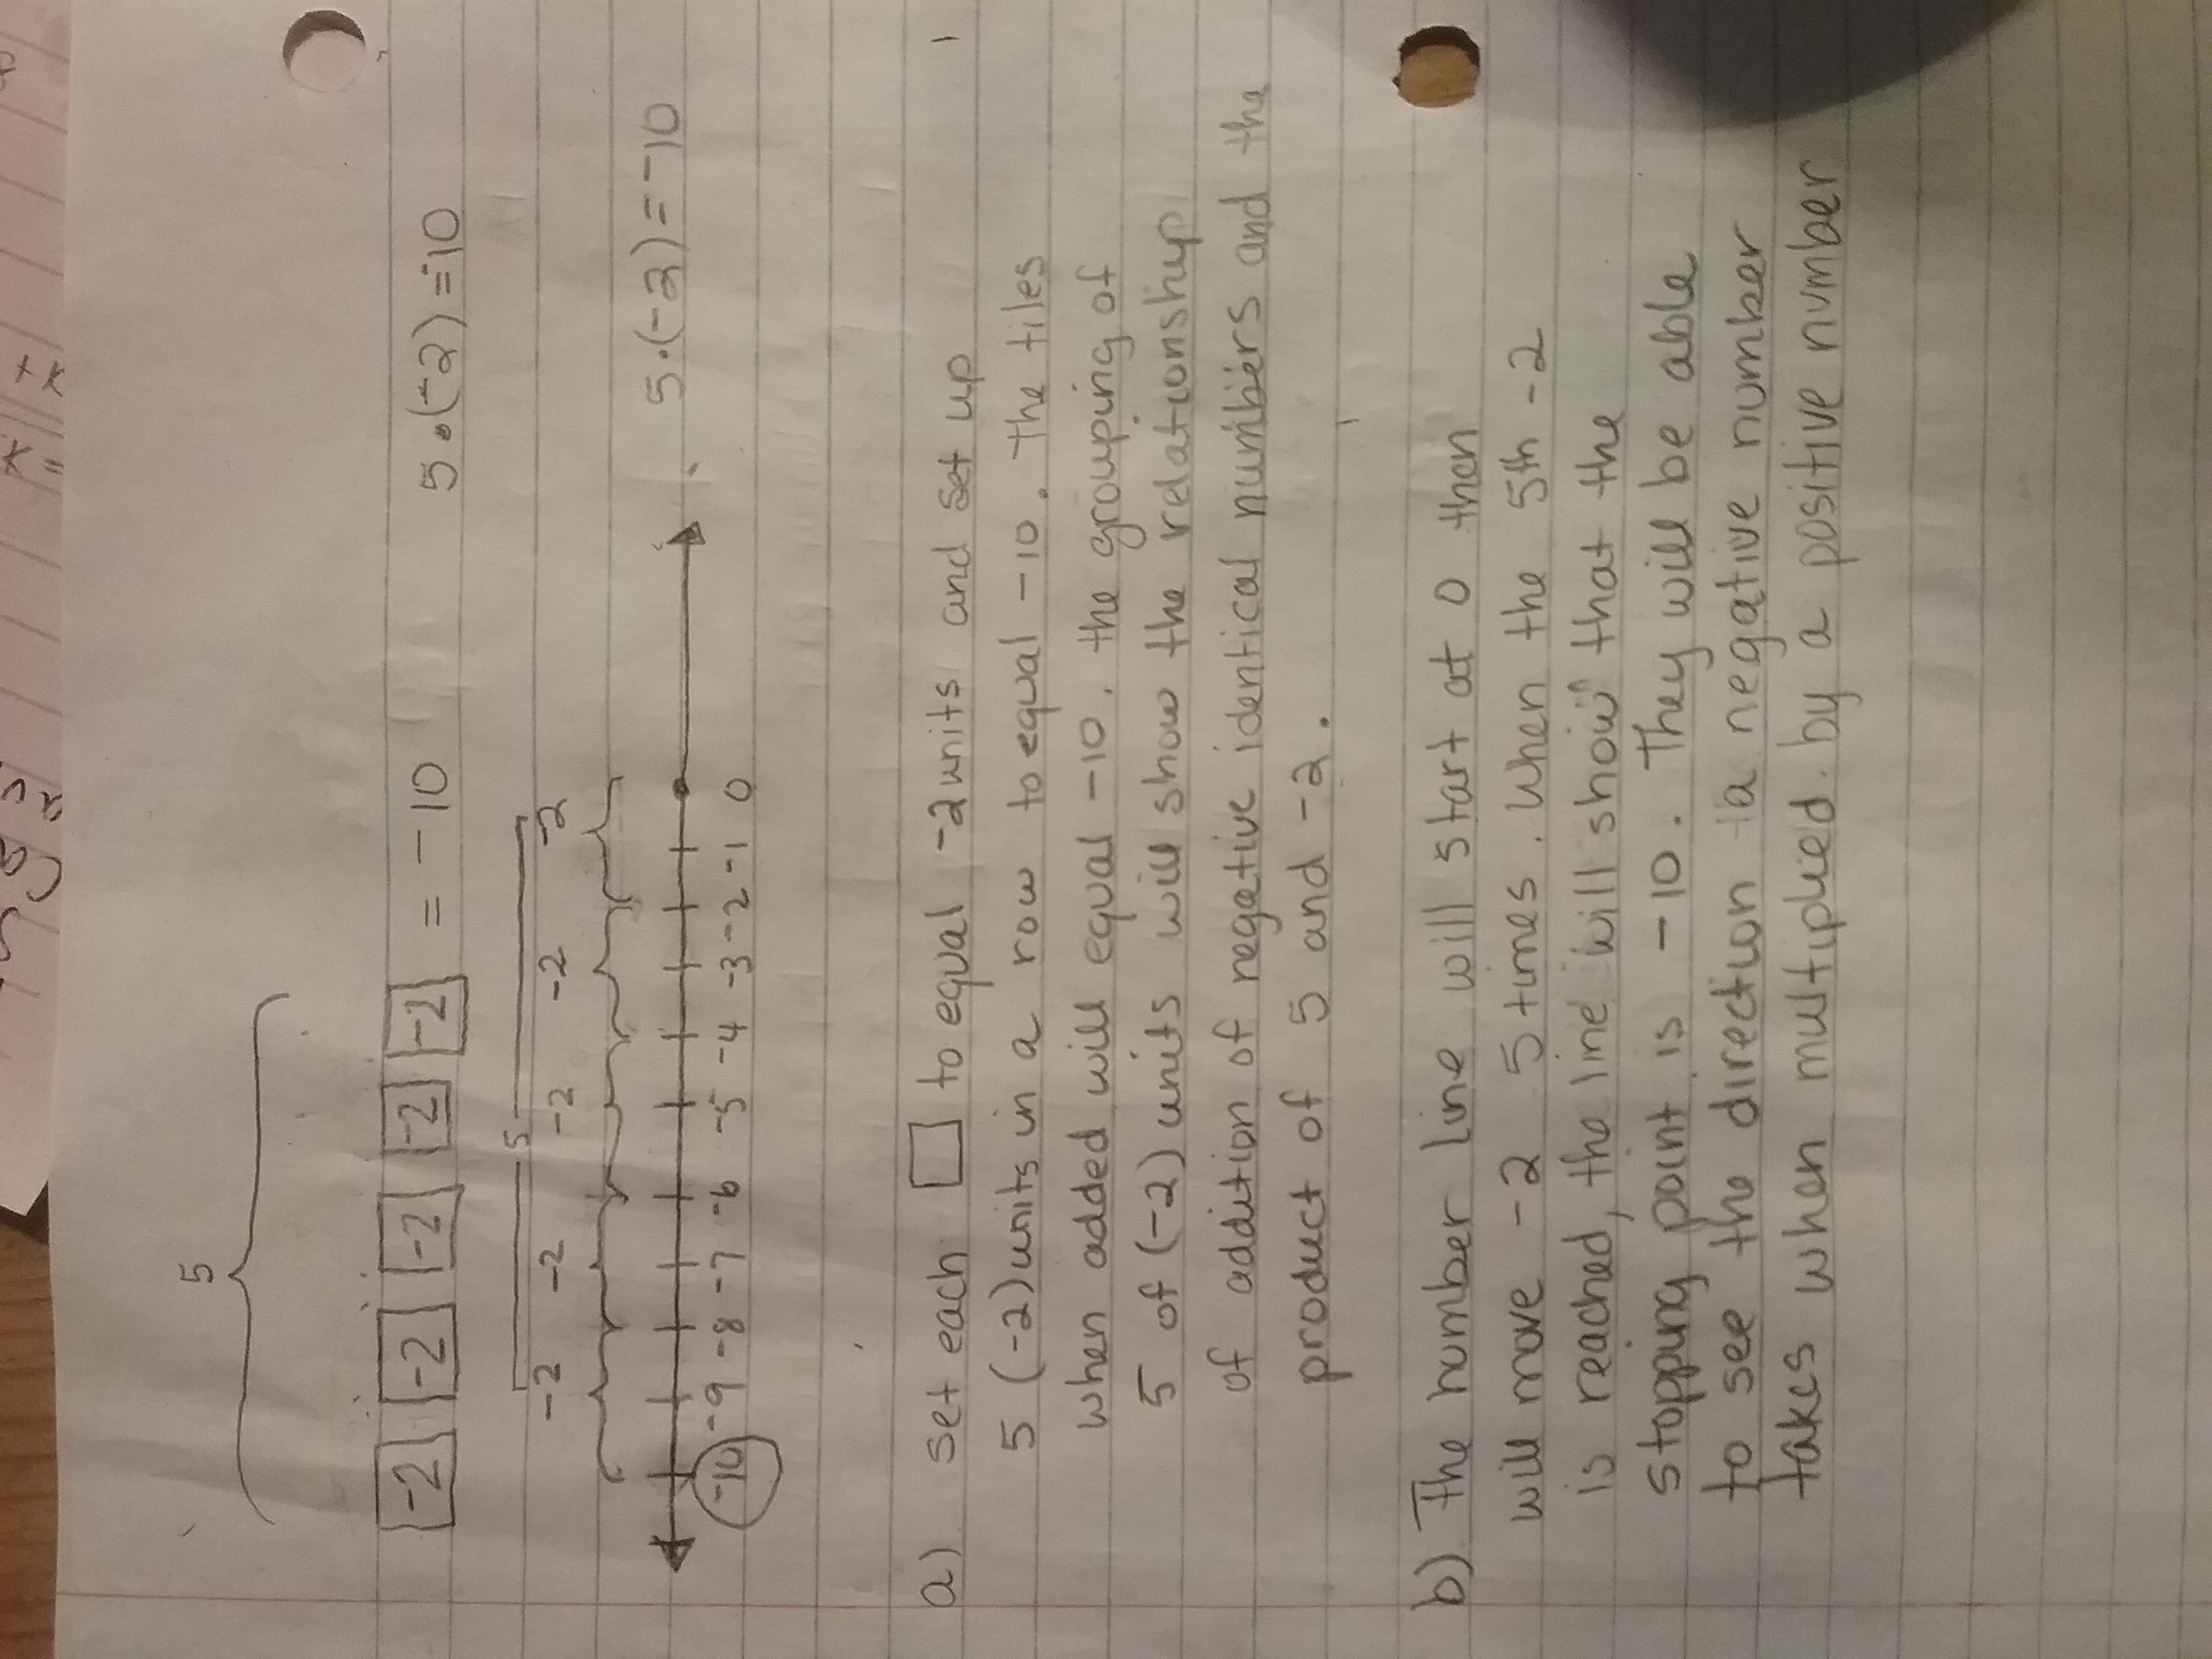 5
-2 -2 -2 -2 -2 = -10 5•(-2)=-10
5
-2 -2 -2 -2 -2
5•(-2)=-10
-10 -9 -8 -7 -6 -5 -4 -3 -2 -1 0
a) set each to equal -2 units and set up
5 (-2) units in a row to equal -10. The tiles
when added will equal -10. the grouping of
5 of (-2) units will show the relationshup
of addition of negative identical numbers and the
product of 5 and -2.
b) The number line will start at 0 then
will move -2 5 times. when the 5th -2
is reached, the line will show that the
stopping point is -10. They will be able
to see the direction a negative number
takes when multiplied by a positive number